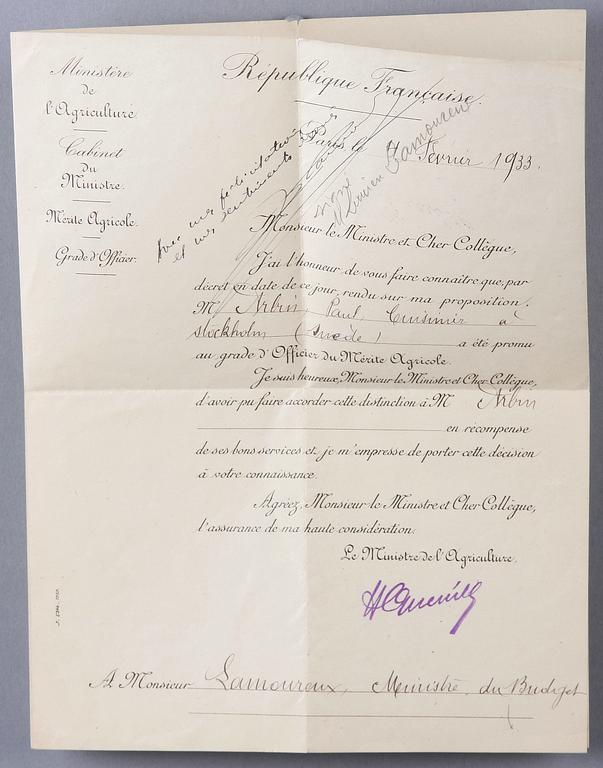 Ministère
de
l'Agriculture
Cabinet
du
Ministre.
Mérite Agricole.
Grade d'Officier.
République Française.
Paris, le 4 Février 1933.
Avec mes félicitations
et mes sentiments
signé
Lucien Lamoureux
Monsieur le Ministre et Cher Collègue,
J'ai l'honneur de vous faire connaître que, par
décret en date de ce jour, rendu sur ma proposition,
M Arbin, Paul, Cuisinier à
Stockholm (Suède) a été promu
au grade d'Officier du Mérite Agricole.
Je suis heureux, Monsieur le Ministre et Cher Collègue,
d'avoir pu faire accorder cette distinction à M Arbin
en récompense
de ses bons services et je m'empresse de porter cette décision
à votre connaissance.
Agréez, Monsieur le Ministre et Cher Collègue,
l'assurance de ma haute considération.
Le Ministre de l'Agriculture.
A Monsieur Lamoureux, Ministre du Budget